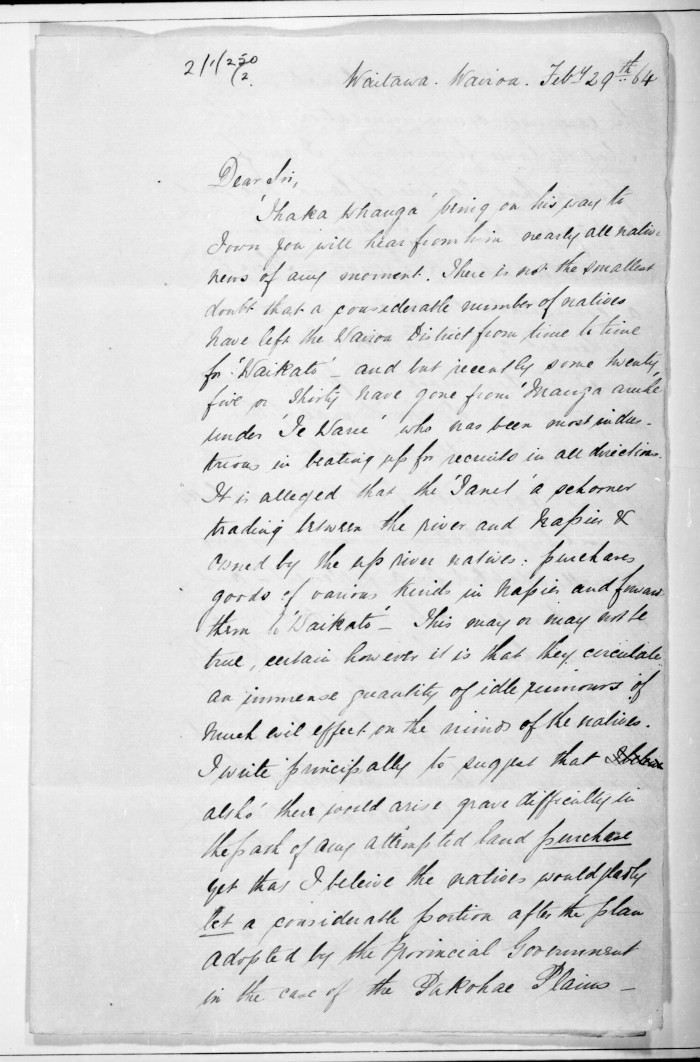 2/1/250/2.
Waitawa. Wairoa. Feby 29th 64
Dear Sir,
'Ihaka Whanga' being on his way to
Town you will hear from him nearly all native
news of any moment. There is not the smallest
doubt that a considerable number of natives
have left the Wairoa District from time to time
for 'Waikato' - and but recently some twenty
five or thirty have gone from
under 'Te Waru' who has been most indus-
trious in beating up for recruits in all directions.
It is alleged that the 'Janet' a schorner
trading between the river and Napier &
owned by the up river natives: purchases
goods of various kinds in Napier and forward
them to 'Waikato' - This may or may not be
true, certain however it is that they circulate
an immense quantity of idle rumours of
much evil effect on the minds of the natives.
I write principally to suggest that I beleive
altho' there would arise grave difficulty in
the path of any attempted land purchase
yet that I beleive the natives would gladly
let a considerable portion after the plan
adopted by the Provincial Government
in the case of the Pakohae Plains -